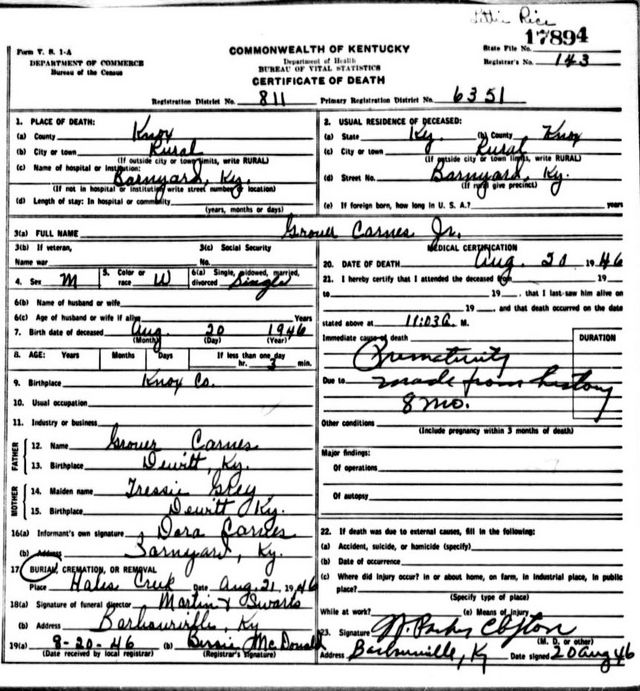 Lottie Rice
17894
Form V. S. 1-A
DEPARTMENT OF COMMERCE
Bureau of the Census
COMMONWEALTH OF KENTUCKY
Department of Health
BUREAU OF VITAL STATISTICS
CERTIFICATE OF DEATH
State File No.
Registrar's No. 143
Registration District No. 811 Primary Registration District No. 6351
1. PLACE OF DEATH:
(a) County Knox
(b) City or town Rural
(If outside city or town limits, write RURAL)
(c) Name of hospital or institution:
Barnyard, Ky.
(If not in hospital or institution write street number or location)
(d) Length of stay: In hospital or community
(years, months or days)
2. USUAL RESIDENCE OF DECEASED:
(a) State Ky. (b) County Knox
(c) City or town Rural
(If outside city or town limits, write RURAL)
(d) Street No. Barnyard, Ky.
(If rural give precinct)
(e) If foreign born, how long in U. S. A.? years
3(a) FULL NAME Grover Carnes Jr.
3(b) If veteran,
Name war
3(c) Social Security
No.
4. Sex M 5. Color or race W 6(a) Single, widowed, married, divorced Single
6(b) Name of husband or wife
6(c) Age of husband or wife if alive Years
7. Birth date of deceased Aug. 20 1946
(Month) (Day) (Year)
8. AGE: Years Months Days If less than one day
hr. 3 min.
9. Birthplace Knox Co.
10. Usual occupation
11. Industry or business
FATHER
12. Name Grover Carnes
13. Birthplace Dewitt, Ky.
MOTHER
14. Maiden name Tressie
15. Birthplace Dewitt Ky.
16(a) Informant's own signature Dora Carnes
(b) Address Barnyard, Ky.
17 BURIAL, CREMATION, OR REMOVAL
Place Hales Creek Date Aug. 21, 1946
18(a) Signature of funeral director Martin & Swarts
(b) Address Barbourville, Ky
19(a) 8-20-46 (b) Bessie McDonald
(Date received by local registrar) (Registrar's signature)
MEDICAL CERTIFICATION
20. DATE OF DEATH Aug. 20 1946
21. I hereby certify that I attended the deceased from 19
to 19, that I last saw him alive on
19, and that death occurred on the date
stated above at 11:03 A. M.
Immediate cause of death DURATION
Prematurity
Due to made from history
8 mo.
Other conditions
(Include pregnancy within 3 months of death)
Major findings:
Of operations
Of autopsy
22. If death was due to external causes, fill in the following:
(a) Accident, suicide, or homicide (specify)
(b) Date of occurrence
(c) Where did injury occur? in or about home, on farm, in industrial place, in public
place?
(Specify type of place)
While at work? (e) Means of injury
23. Signature
(M. D. or other)
Address Barbourville, Ky Date signed 20 Aug 46